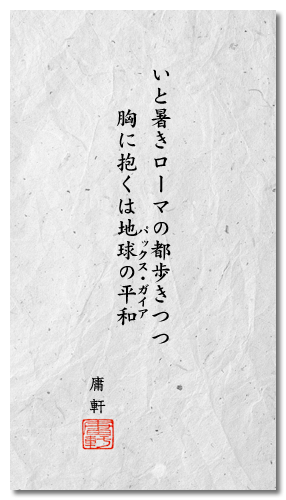 いと暑きローマの都歩きつつ
胸に抱くは地球の平和
パックス・ガイア
庸軒
庸軒